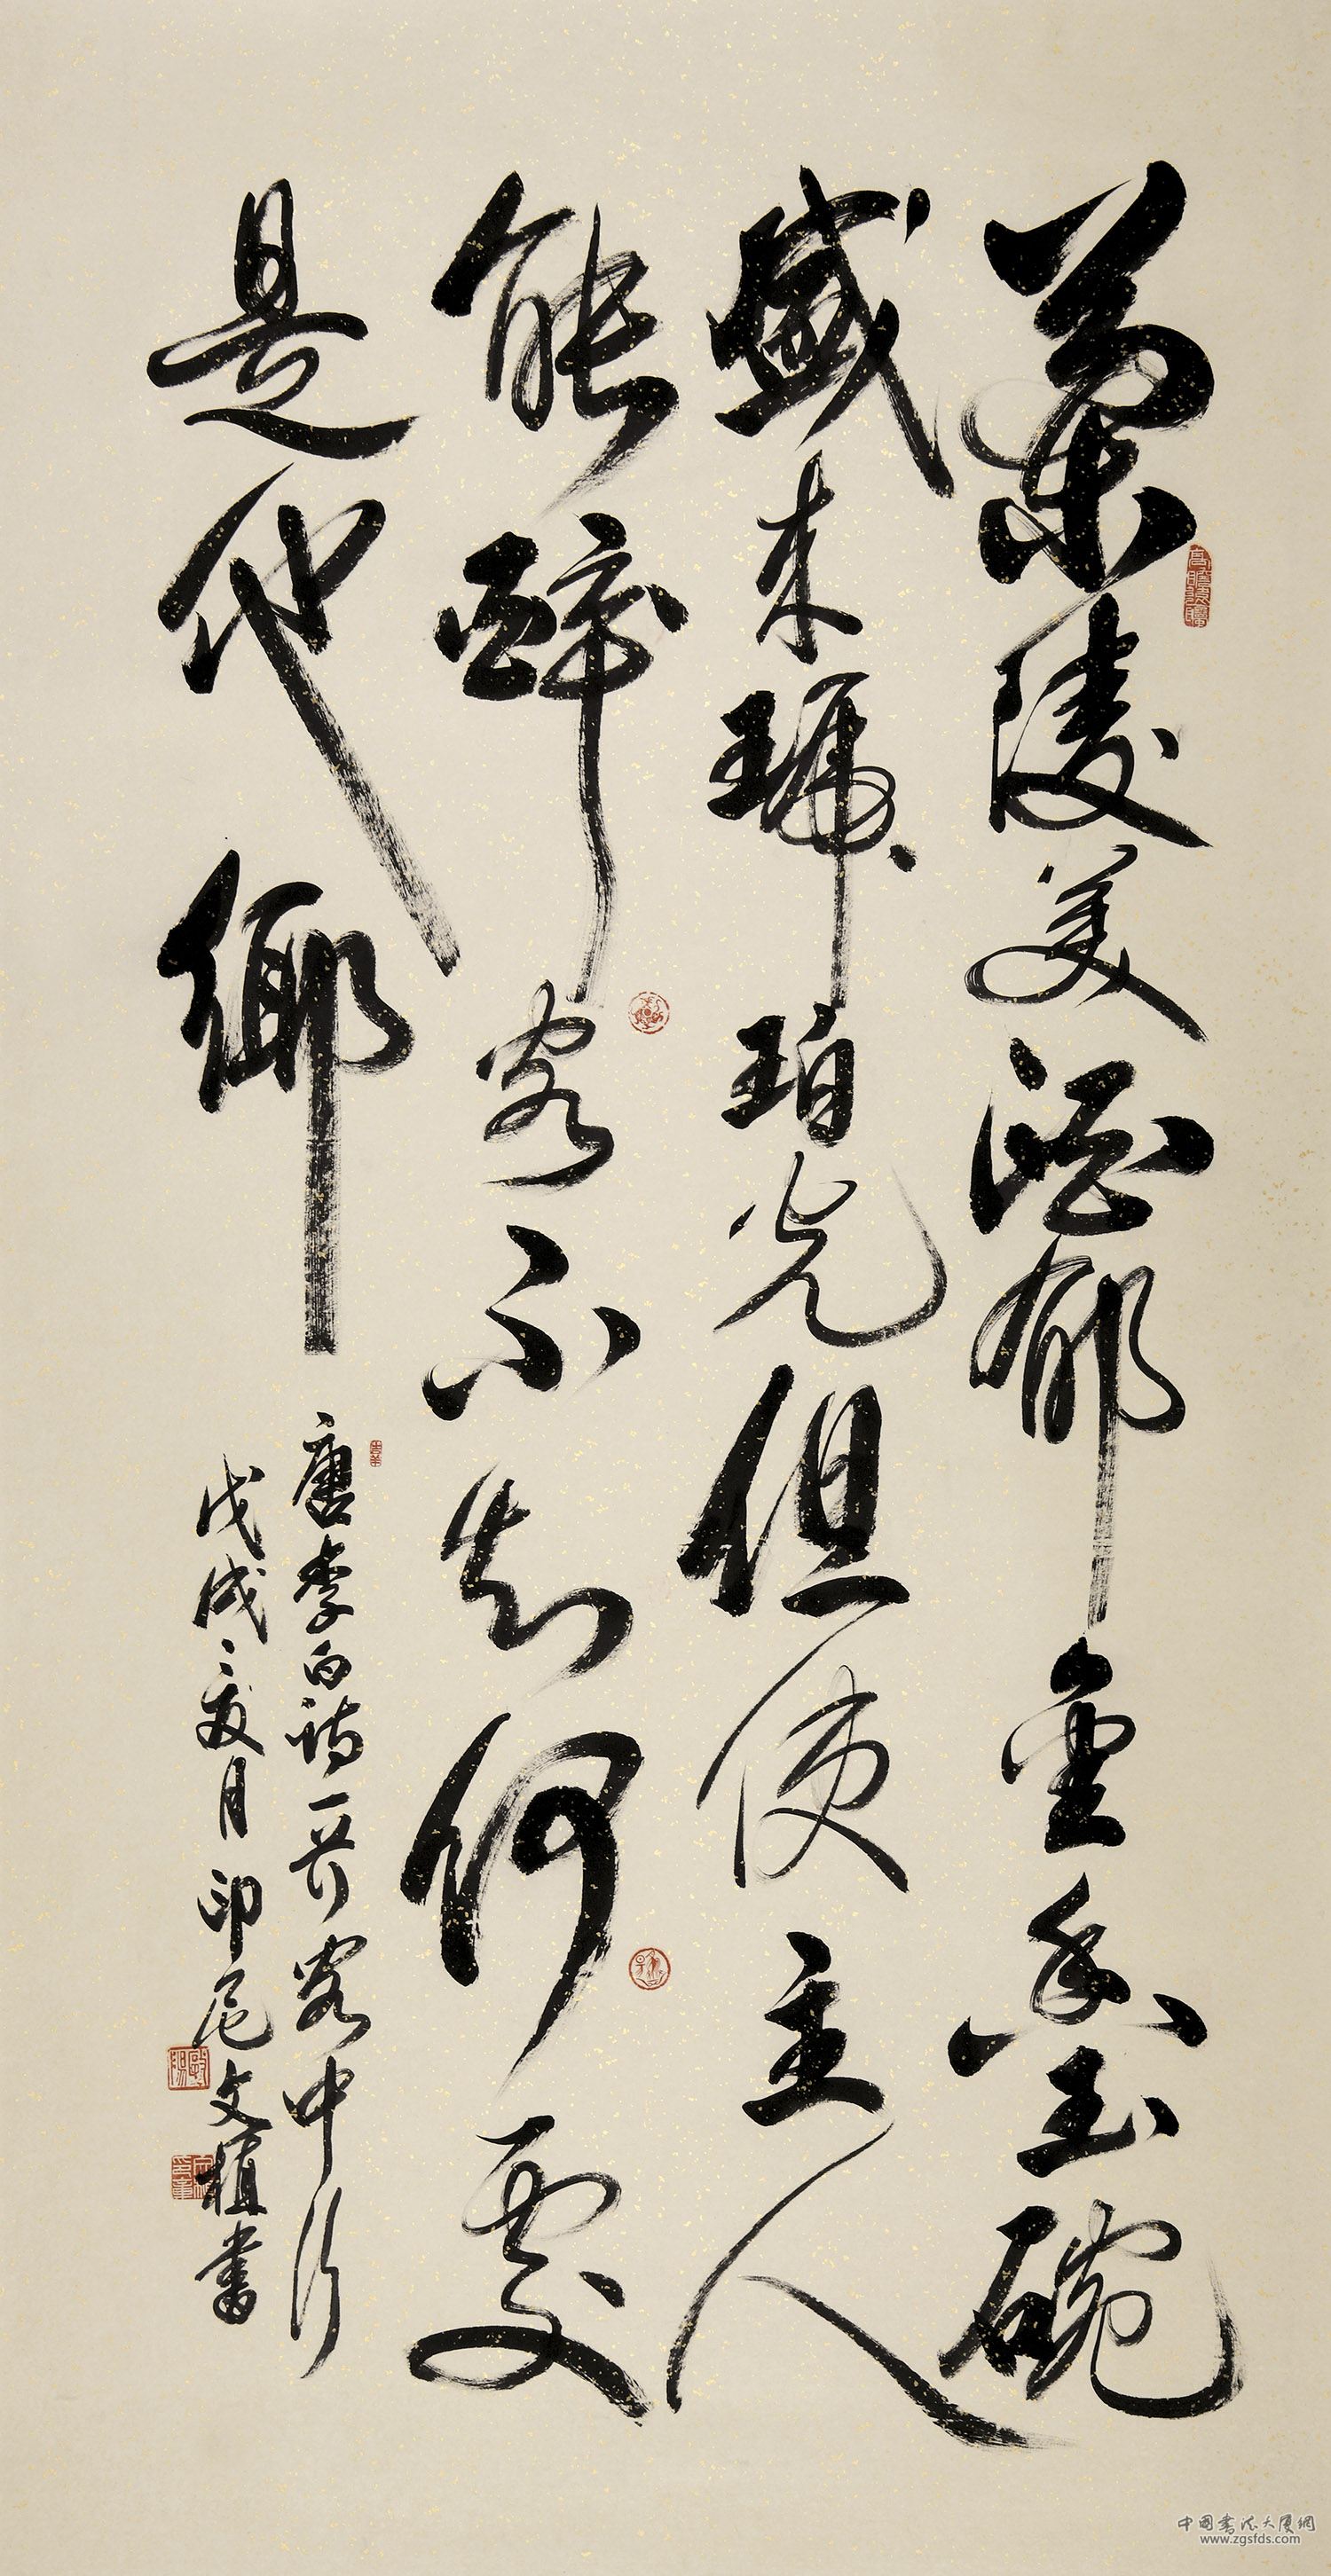 蘭陵美酒郁金香玉碗
盛来琥珀光但使主人
能醉客不知何處
是他鄉
唐李白詩一首客中行
戊戌之夏月印尼文植書
中国書法大厦網
www.zgsfds.com